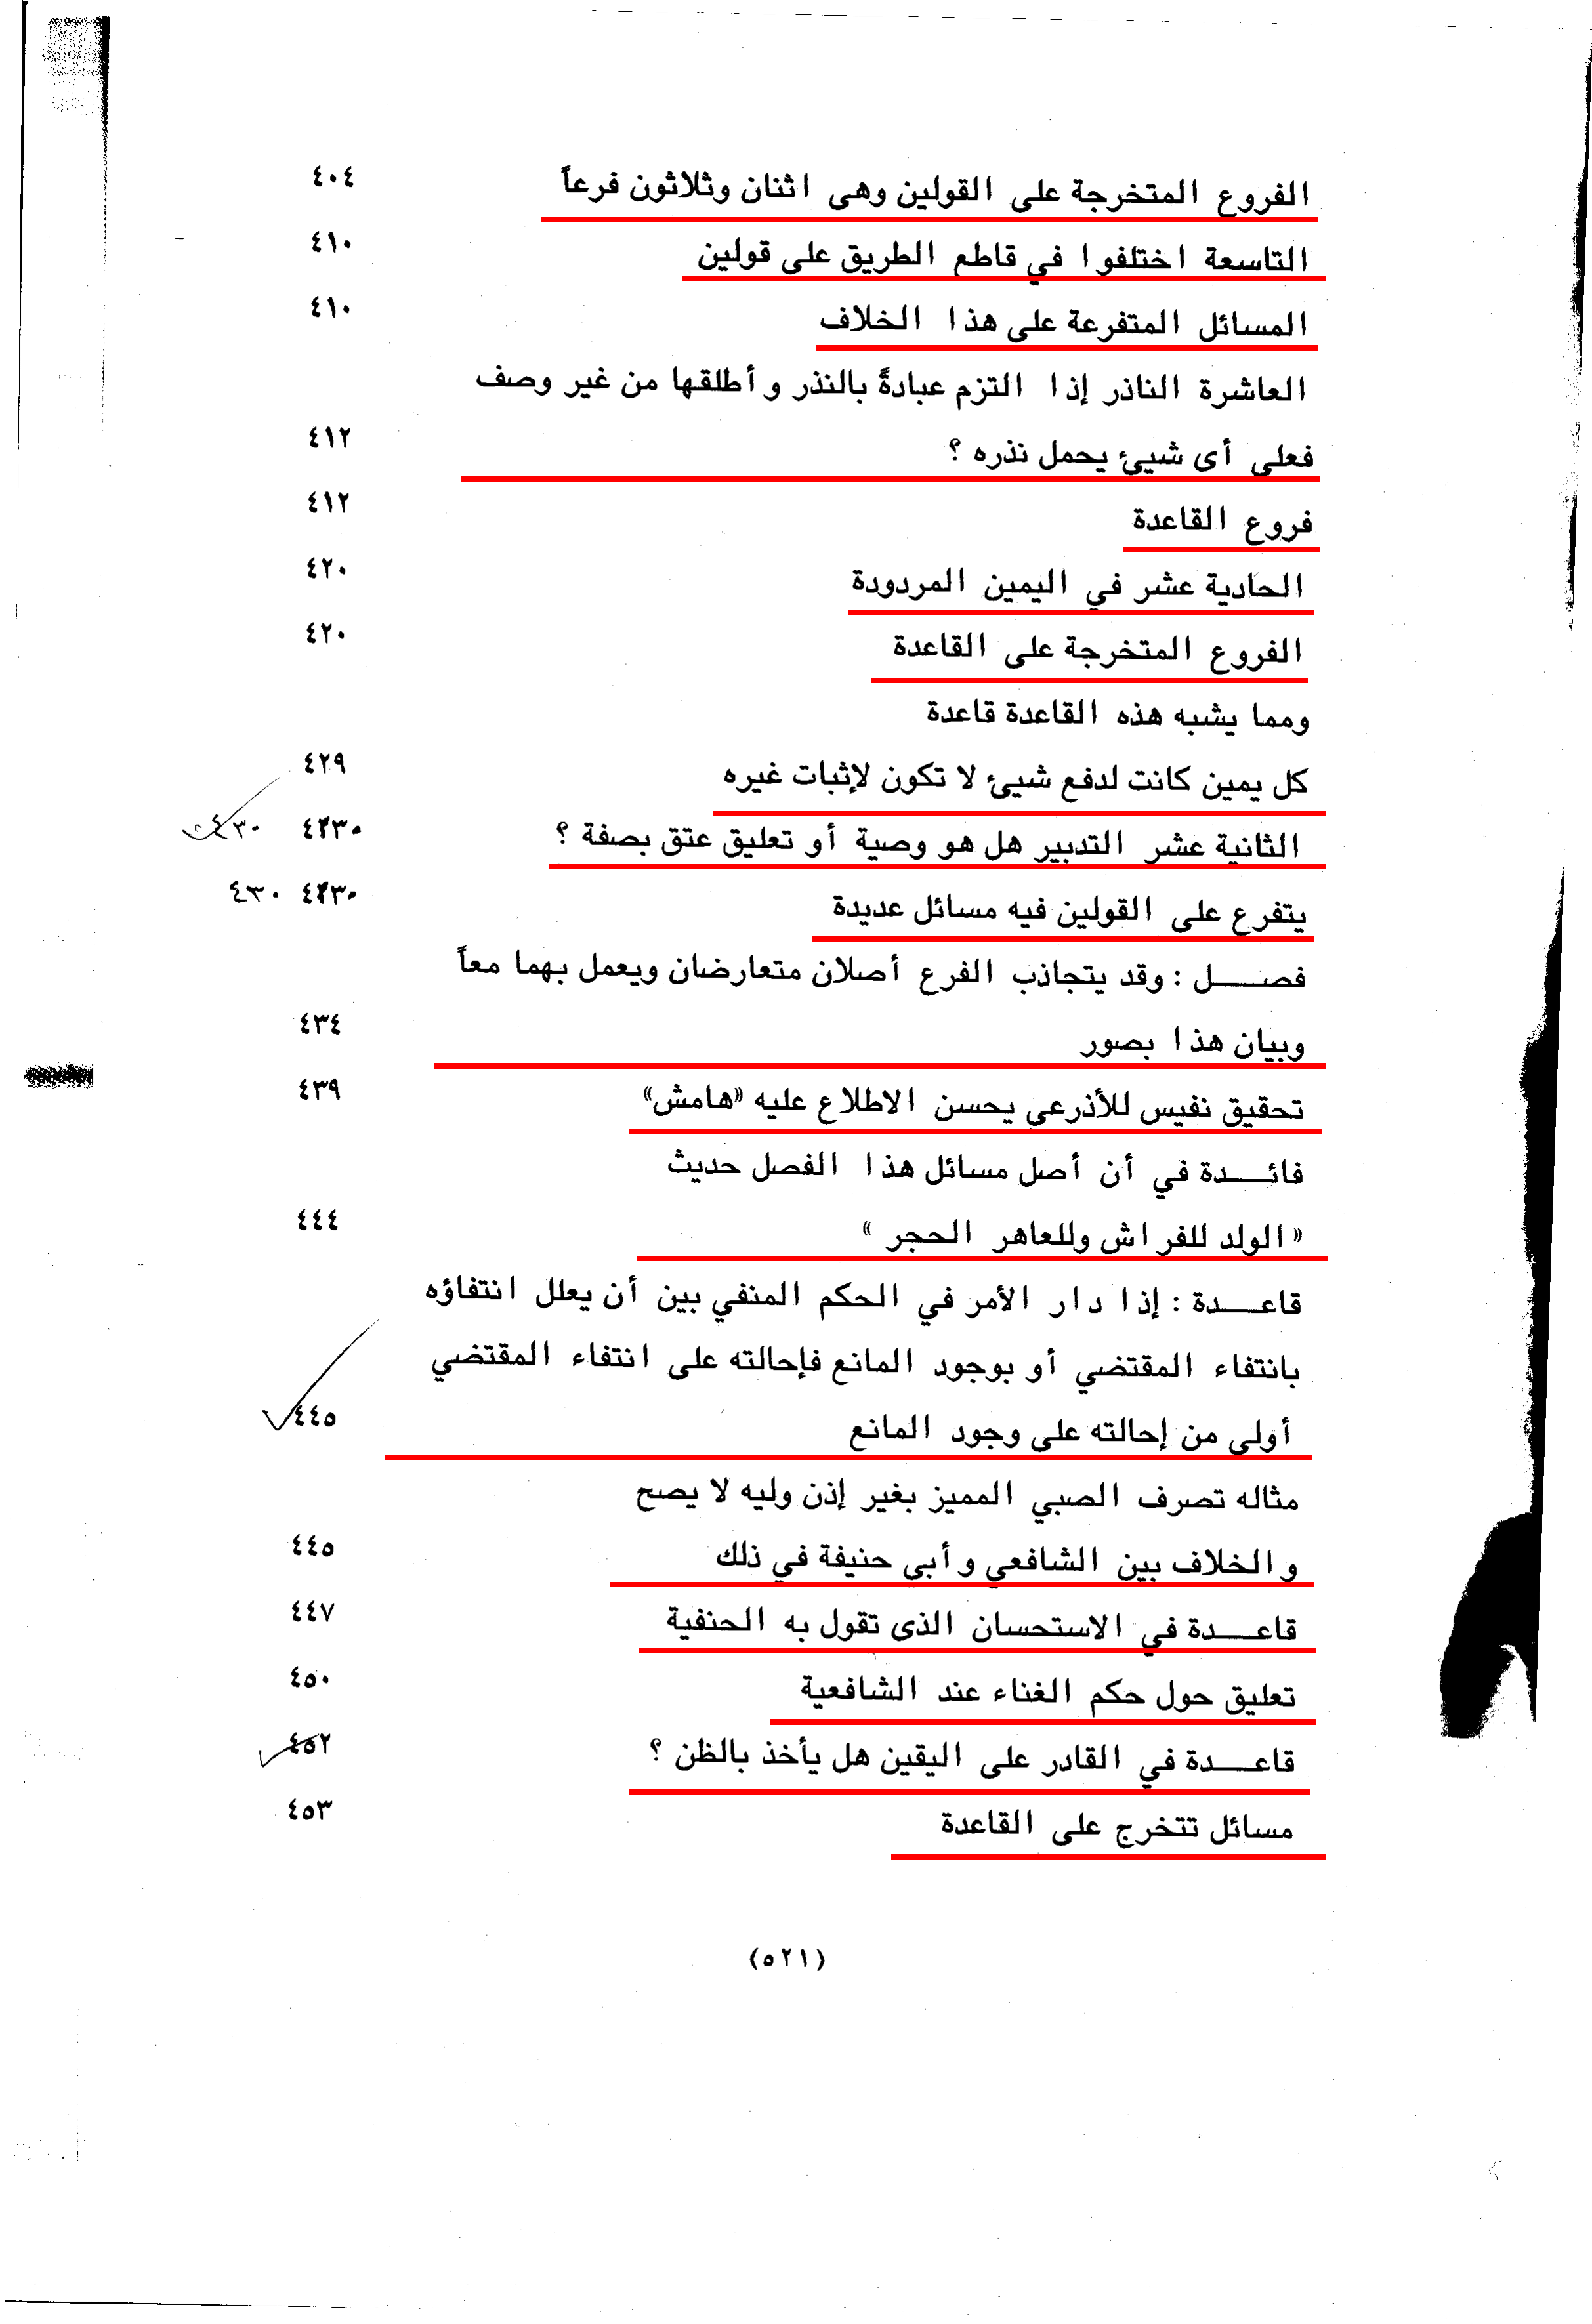 الفروع المتخرجة على القولين وهى اثنان وثلاثون فرعاً ٤٠٤
التاسعة اختلفوا في قاطع الطريق على قولين ٤١٠
المسائل المتفرعة على هذا الخلاف ٤١٠
العاشرة الناذر إذا التزم عبادةً بالنذر وأطلقها من غير وصف
فعلى أى شيئ يحمل نذره ؟ ٤١٢
فروع القاعدة ٤١٢
الحادية عشر في اليمين المردودة ٤٢٠
الفروع المتخرجة على القاعدة ٤٢٠
ومما يشبه هذه القاعدة قاعدة
كل يمين كانت لدفع شيئ لا تكون لإثبات غيره ٤٢٩
الثانية عشر التدبير هل هو وصية أو تعليق عتق بصفة ؟ ٤٣٠
يتفرع على القولين فيه مسائل عديدة ٤٣٠
فصــــل : وقد يتجاذب الفرع أصلان متعارضان ويعمل بهما معاً
وبيان هذا بصور ٤٣٤
تحقيق نفيس للأذرعى يحسن الاطلاع عليه «هامش» ٤٣٩
فائــــدة في أن أصل مسائل هذا الفصل حديث
« الولد للفراش وللعاهر الحجر » ٤٤٤
قاعــــدة : إذا دار الأمر في الحكم المنفي بين أن يعلل انتفاؤه
بانتفاء المقتضي أو بوجود المانع فإحالته على انتفاء المقتضي
أولى من إحالته على وجود المانع ٤٤٥
مثاله تصرف الصبي المميز بغير إذن وليه لا يصح
والخلاف بين الشافعي وأبى حنيفة في ذلك ٤٤٥
قاعــــدة في الاستحسان الذى تقول به الحنفية ٤٤٧
تعليق حول حكم الغناء عند الشافعية ٤٥٠
قاعــــدة في القادر على اليقين هل يأخذ بالظن ؟ ٤٥٢
مسائل تتخرج على القاعدة ٤٥٣
(٥٢١)